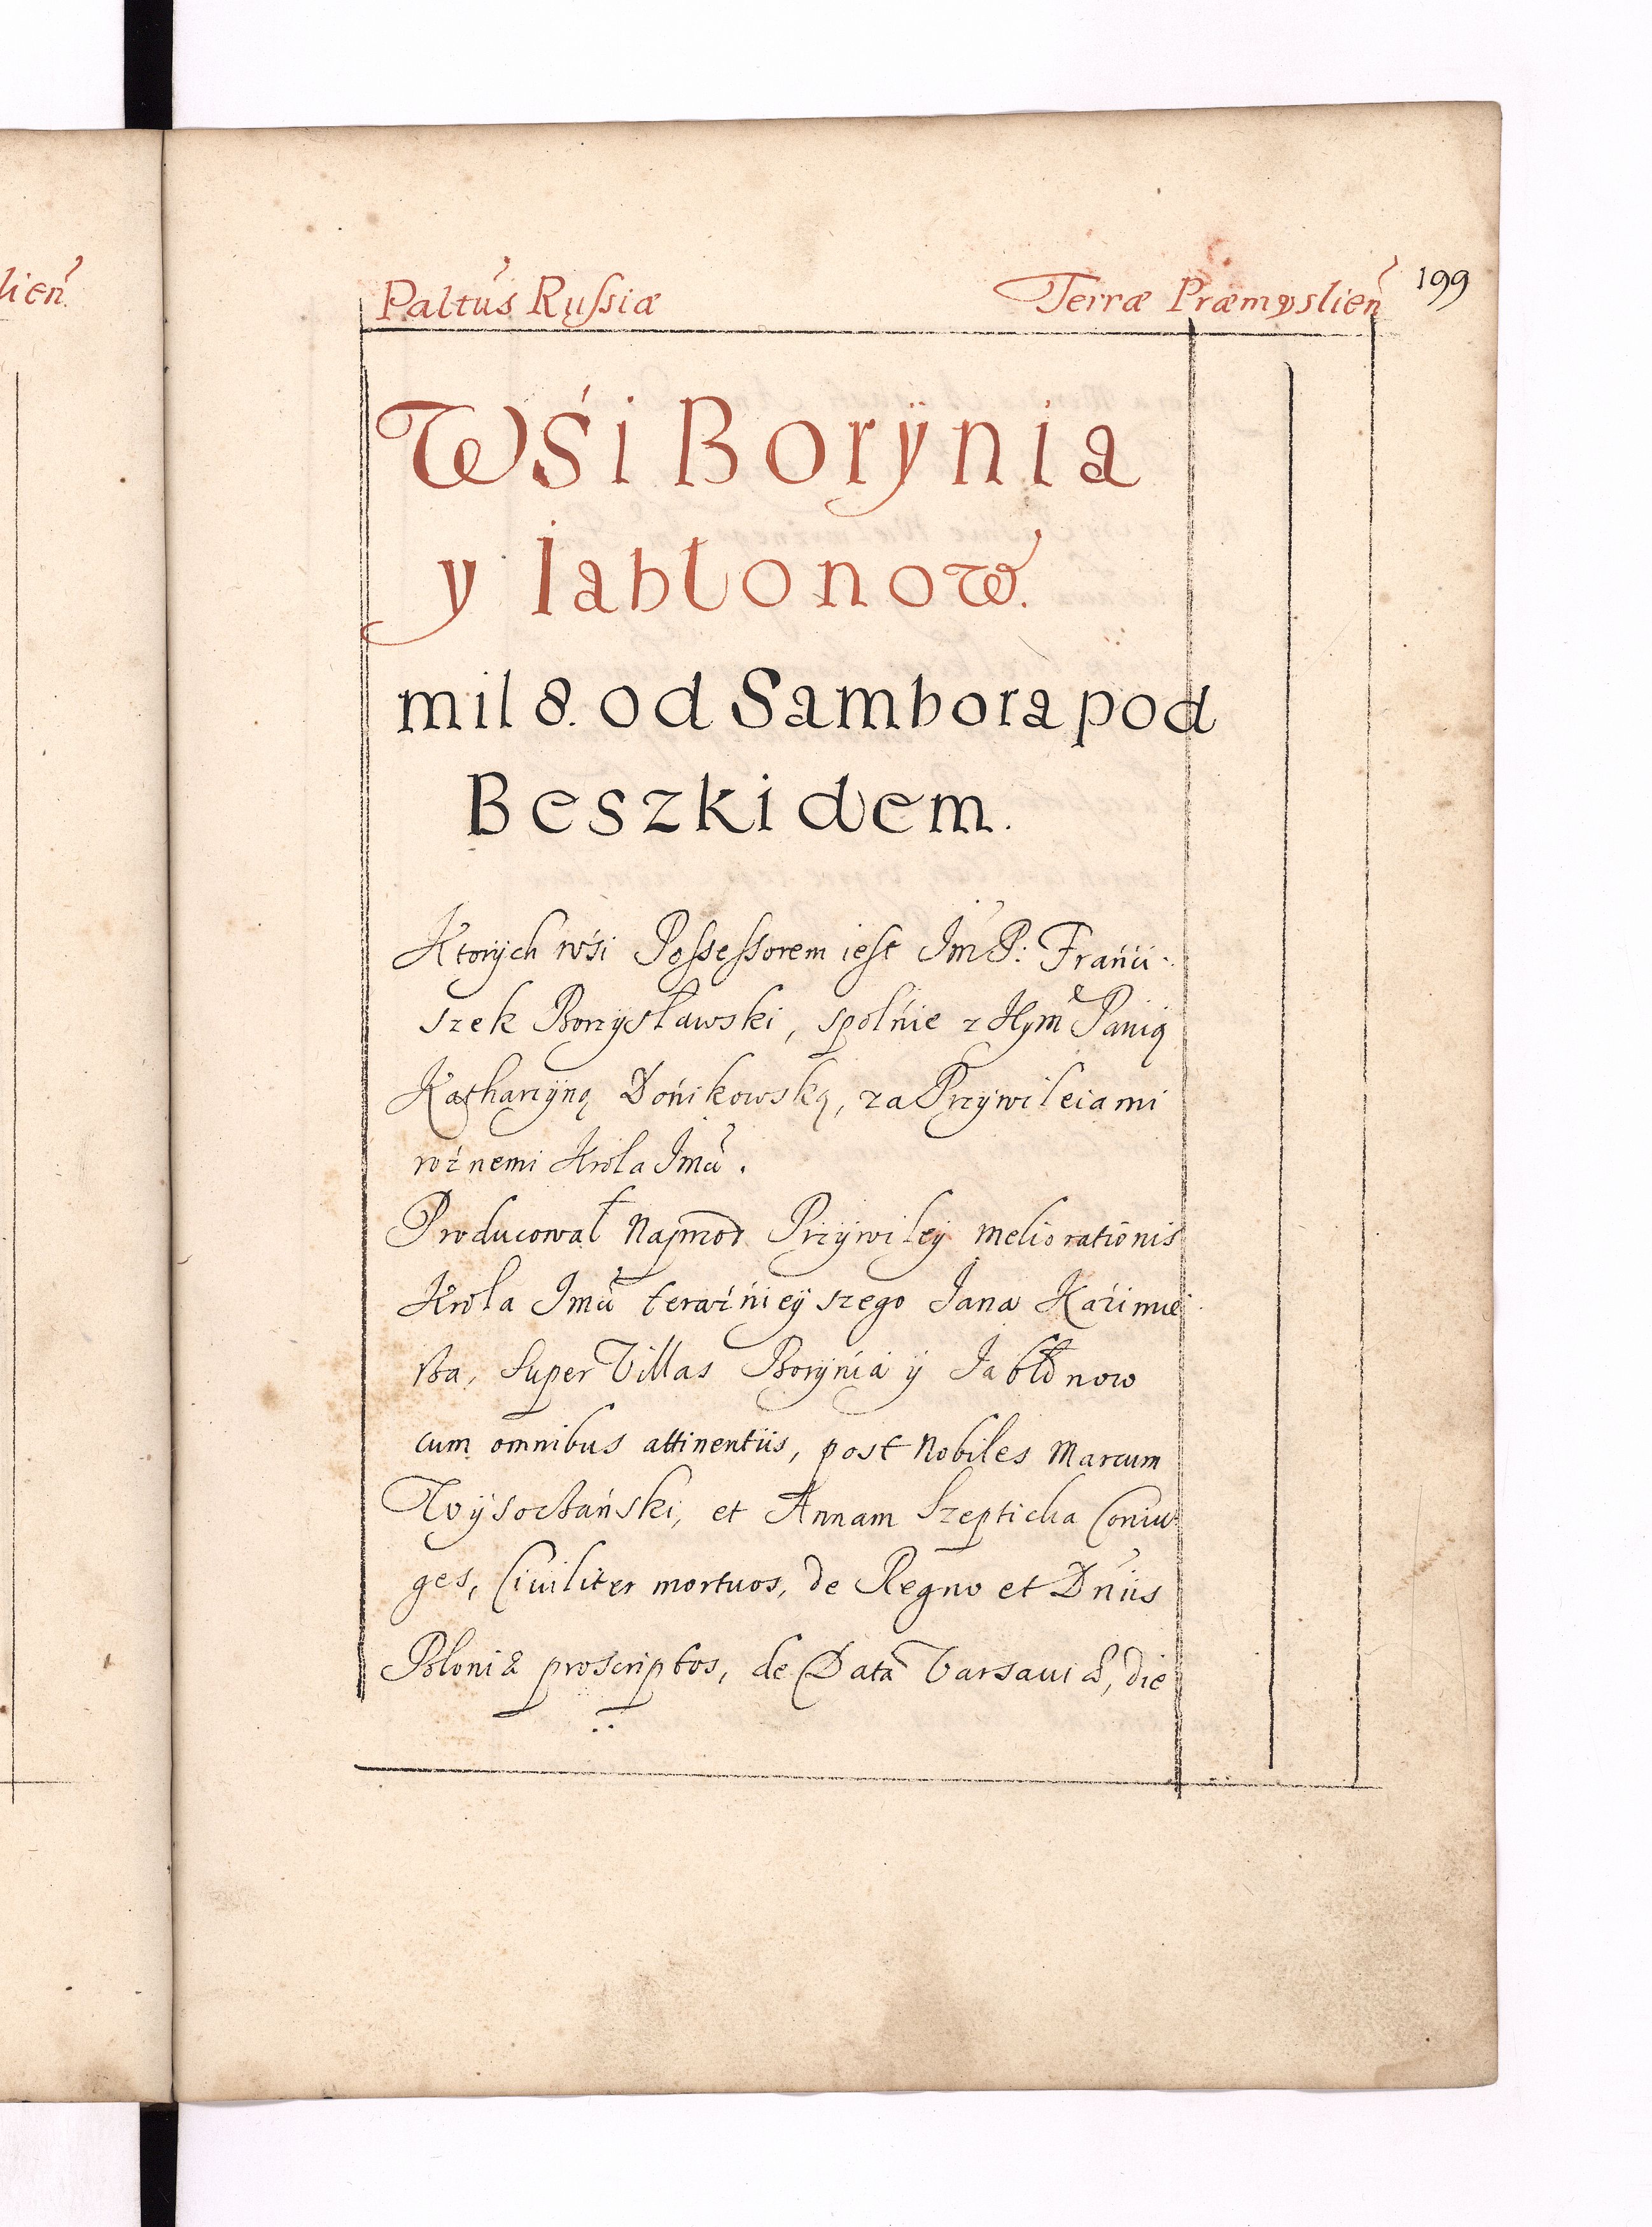 lień
Paltus Russiæ Terræ Præmyslień 199
Wśi Borÿnia
y Jabłonow.
mil 8. od Sambora pod
Beszkidem.
Ktorÿch wśi Possessorem iest JmP: Franći-
szek Borzysławski, społnie z Jeym Panią
Katharzÿną Dońikowską, za Przÿwileiami
roźnemi Krola Jmći.
Producował Przÿwiley meliorationis
Krola Jmći teraźńieÿszego Jana Kaźimie-
rza, super Villas Borÿnia ÿ Jabłonow
cum omnibus attinentiis, post Nobiles Marcum
Wÿsoczański, et Annam Szepticka Coniu-
ges, Ciuiliter mortuos, de Regno et Dńiis
Poloniæ proscriptos, de Data Varsauiæ, die